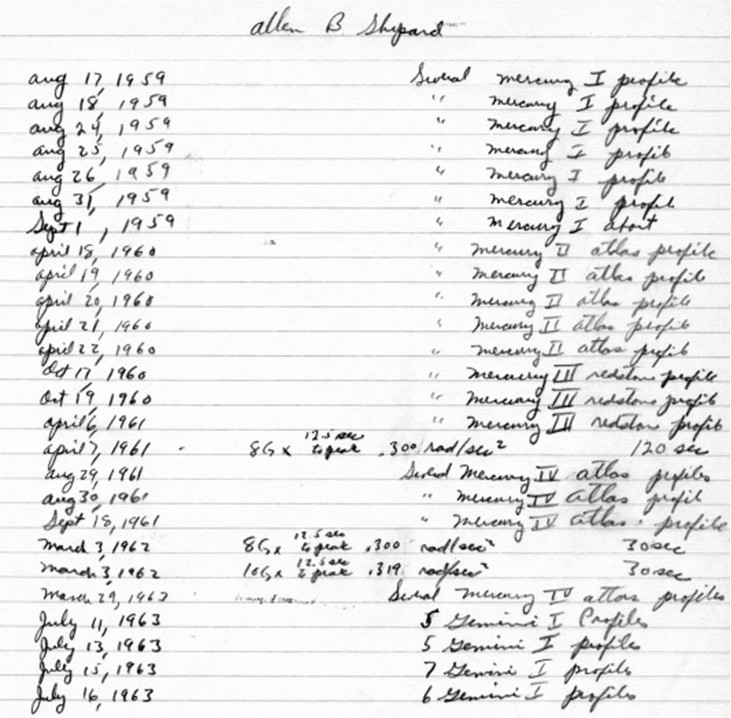 allen B Shepard
aug 17, 1959 Several mercury I profile
aug 18, 1959 " mercury I profile
aug 24, 1959 " mercury I profile
aug 25, 1959 " mercury I profile
aug 26, 1959 " mercury I profile
aug 31, 1959 " mercury I profile
Sept 1, 1959 " mercury I abort
april 18, 1960 " mercury II atlas profile
april 19, 1960 " mercury II atlas profile
april 20, 1960 " mercury II atlas profile
april 21, 1960 " mercury II atlas profile
april 22, 1960 " mercury II atlas profile
Oct 17, 1960 " mercury III redstone profile
Oct 19, 1960 " mercury III redstone profile
april 6, 1961 " mercury III redstone profile
april 7, 1961 8G x 12.5 sec to peak .300 rad/sec² 120 sec
aug 29, 1961 Several Mercury IV atlas profiles
aug 30, 1961 " mercury IV atlas profile
Sept 18, 1961 " mercury IV atlas profile
March 3, 1962 8G x 12.5 sec to peak .300 rad/sec² 30 sec
March 3, 1962 10G x 12.5 sec to peak .319 rad/sec² 30 sec
March 29, 1963 Several mercury IV atlas profiles
July 11, 1963 5 Gemini I Profiles
July 13, 1963 5 Gemini I profiles
July 15, 1963 7 Gemini I profiles
July 16, 1963 6 Gemini I profiles